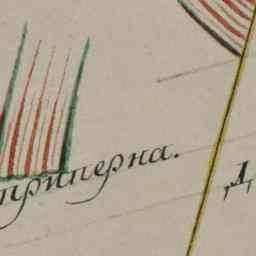 приперна.
Д,